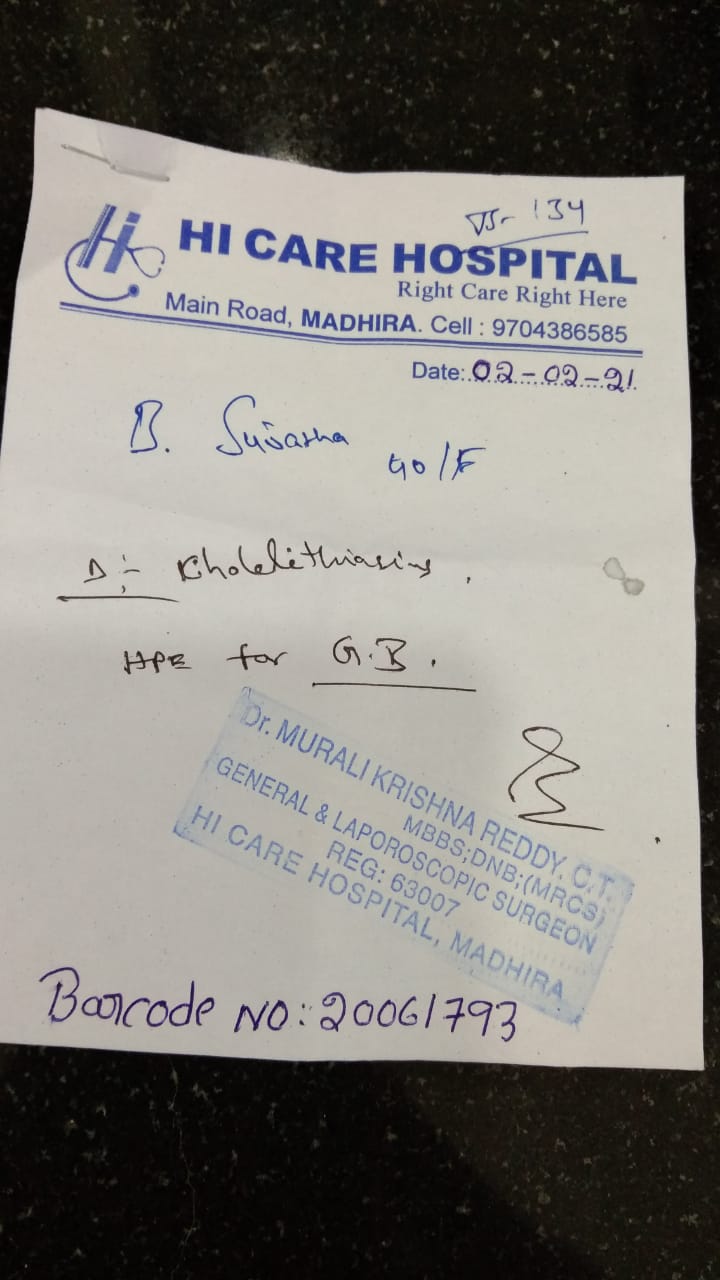 134
Hi
HI CARE HOSPITAL
Right Care Right Here
Main Road, MADHIRA. Cell : 9704386585
Date:.02-02-21
B. 40/F
D:- Kholelithiasins,
HPE for G.B.
Dr. MURALI KRISHNA REDDY. C.T.
MBBS;DNB;(MRCS)
GENERAL & LAPOROSCOPIC SURGEON
REG: 63007
HI CARE HOSPITAL, MADHIRA
Barcode NO:20061793